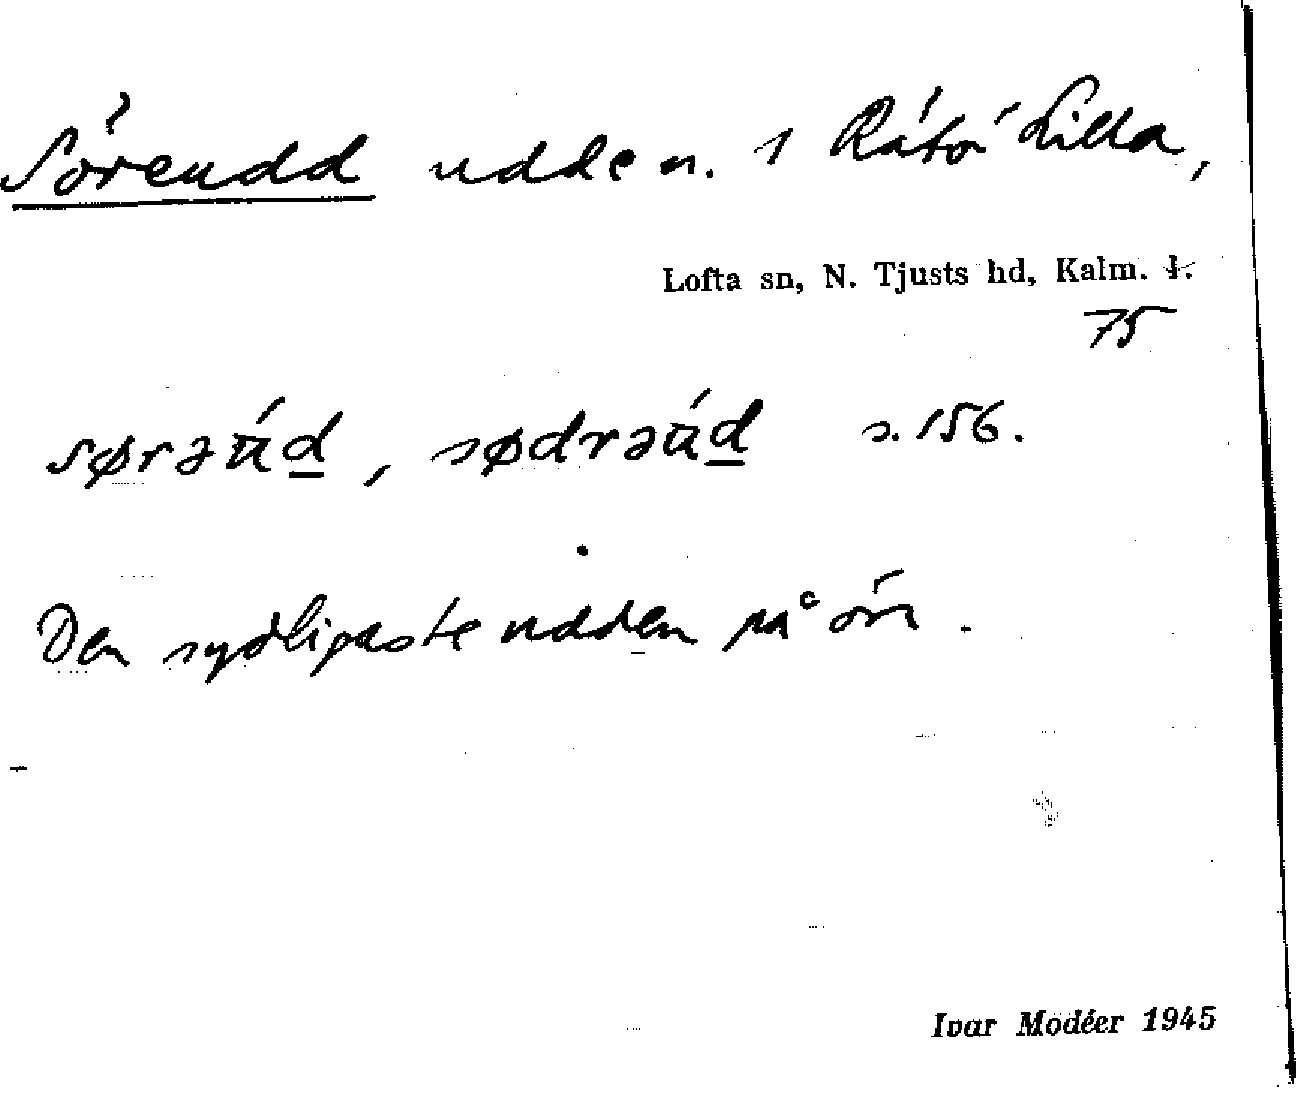 Sörendd udden. 1 Råtö Lilla,
Lofta sn, N. Tjusts hd, Kalm. l.
75
sørəúd, sødrəúd s. 156.
Den sydligaste udden på ön.
Ivar Modéer 1945